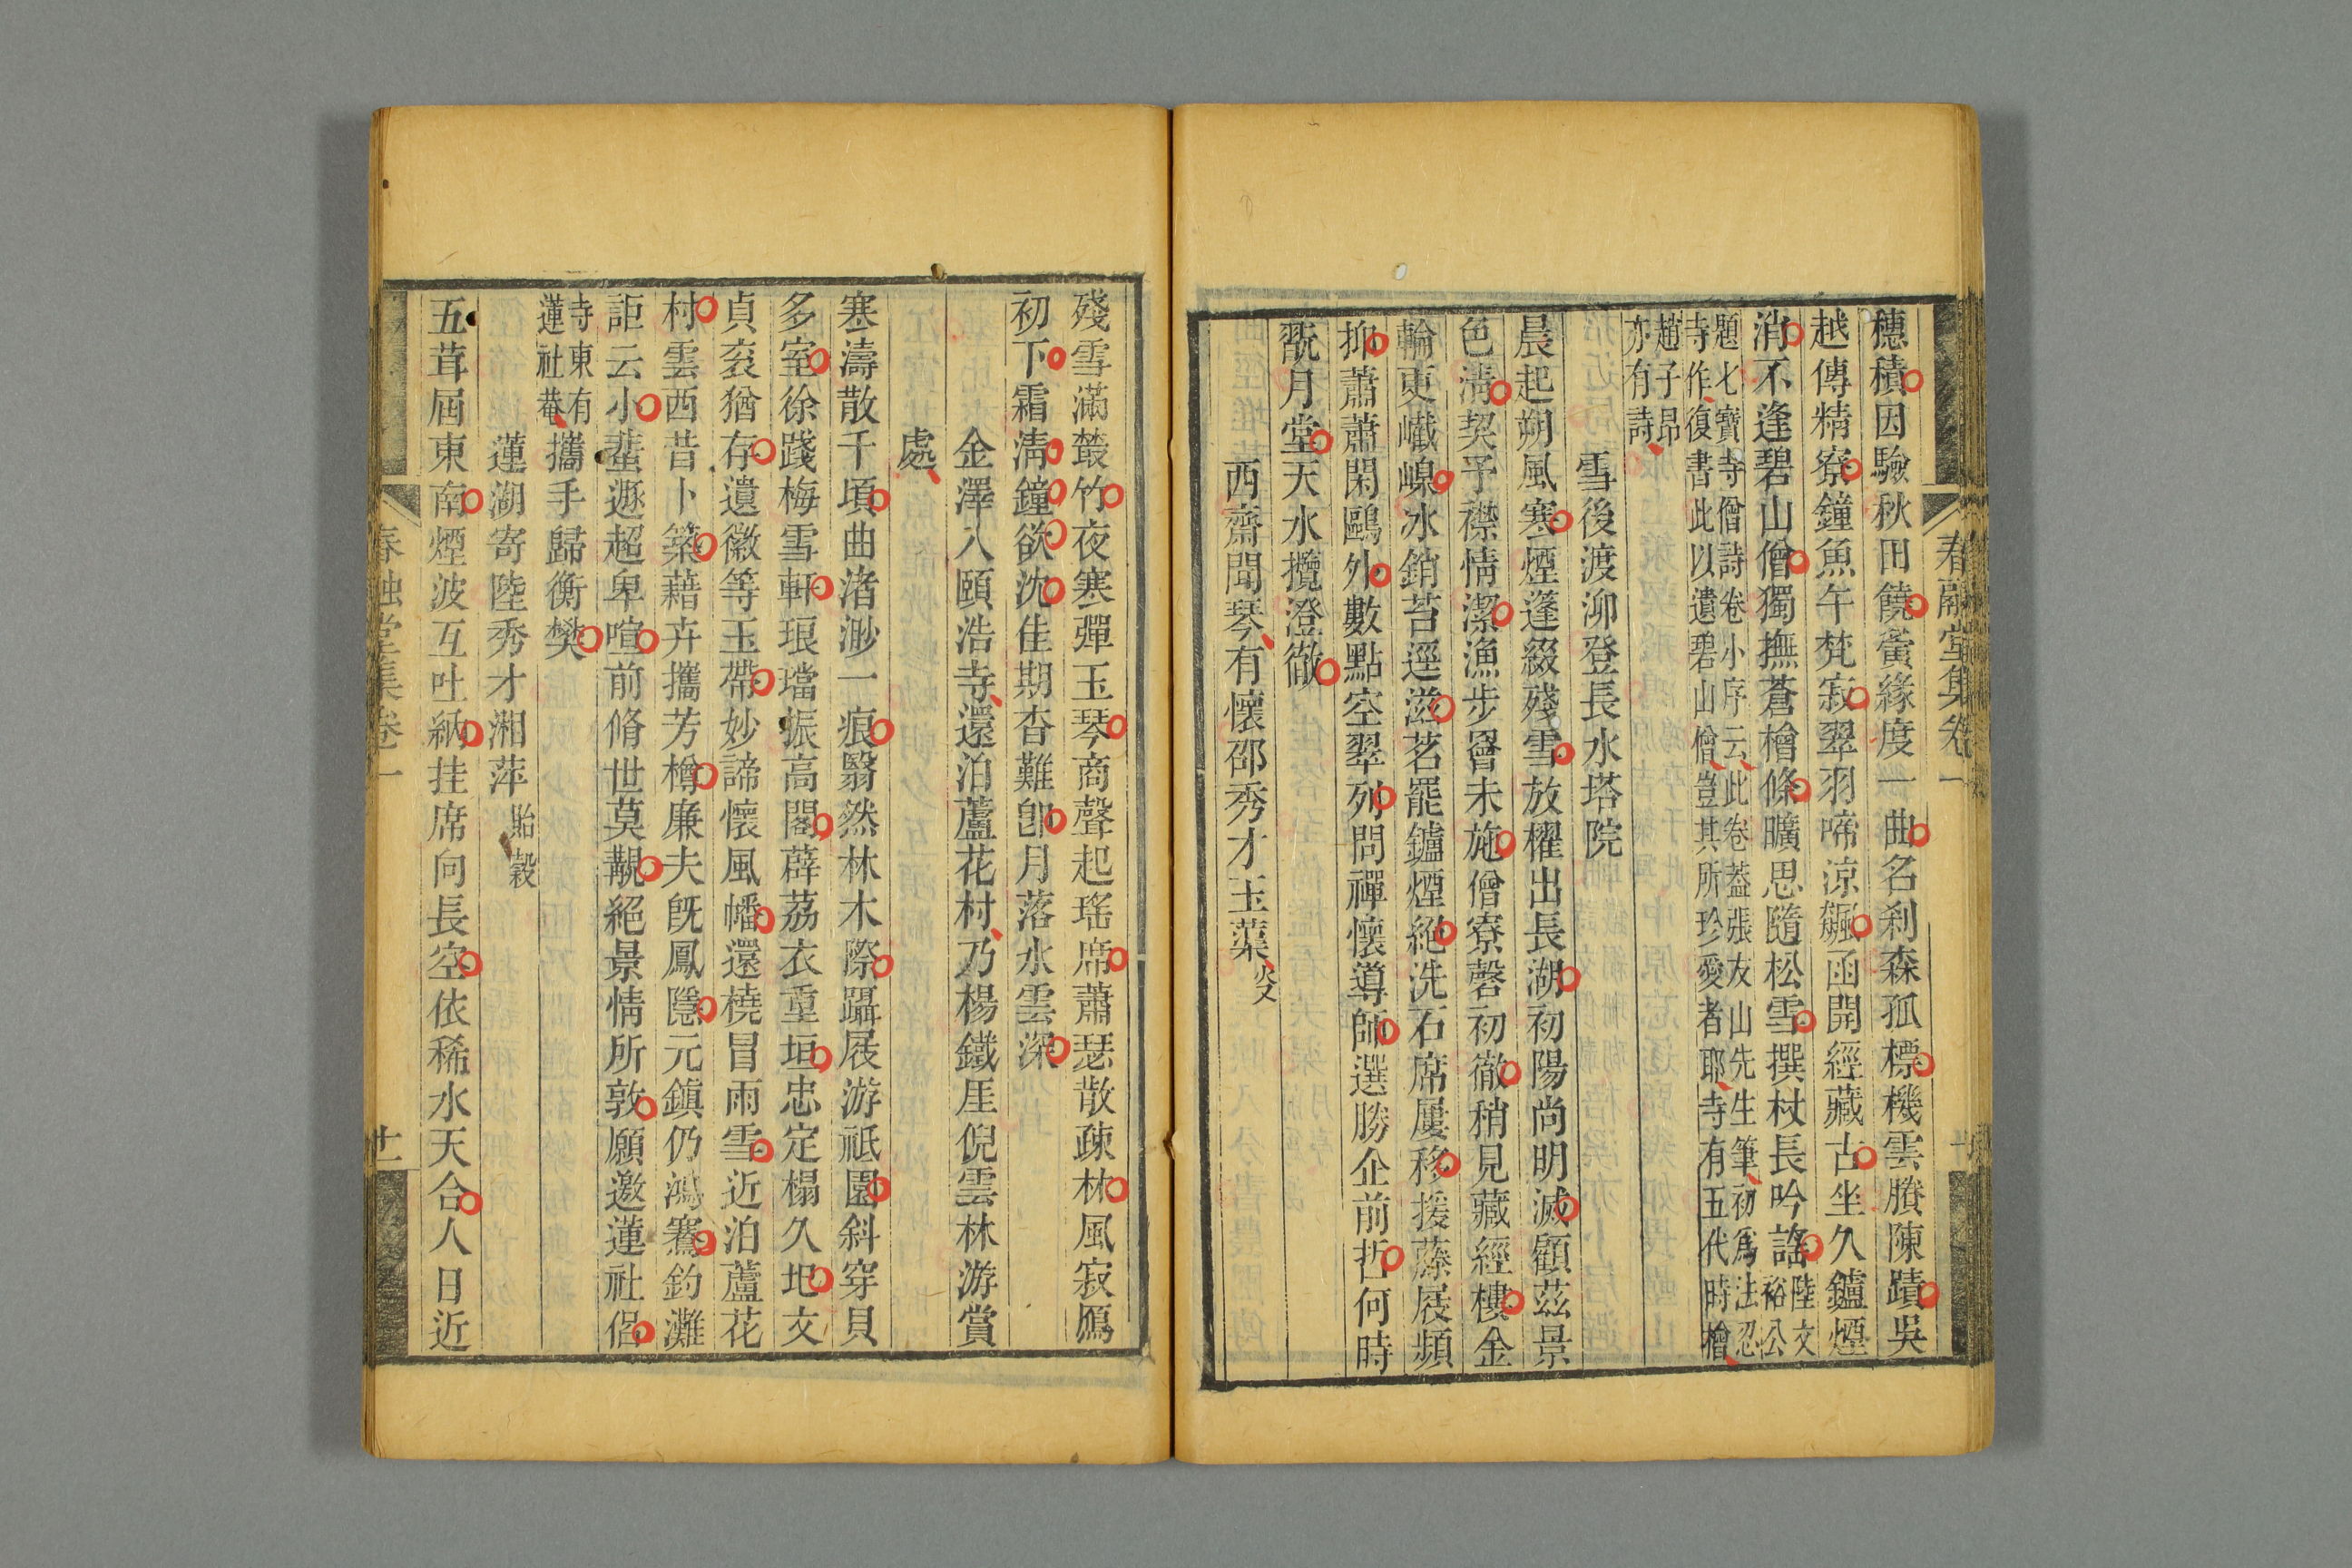 春融堂集卷一
穗積因驗秋田饒黃緣度一曲名刹森孤標機雲賸陳蹟吳
越傳精寮鐘魚午梵寂翠羽啼涼飈函開經藏古坐久鑪煙
消不逢碧山僧獨撫蒼檜條曠思隨松雪撰杖長吟謠陸文
裕公
題七寶寺僧詩卷小序云此卷蓋張友山先生筆初爲法忍
寺作復書此以遺碧山僧豈其所珍愛者耶寺有五代時檜
趙子昂
亦有詩
雪後渡泖登長水塔院
晨起朔風寒煙蓬綴殘雪放櫂出長湖初陽尚明滅顧茲景
色淸契予襟情潔漁步罾未施僧寮磬初徹稍見藏經樓金
輪更巘嵲冰銷苔逕滋茗罷鑪煙絕洗石席屢移援藤屐頻
抑蕭蕭閑鷗外數點空翠列問禪懷導師選勝企前哲何時
翫月堂天水攬澄徹
西齋聞琴有懷邵秀才玉葉炎
殘雪滿叢竹夜寒彈玉琴商聲起瑤席蕭瑟散疎林風寂鴈
初下霜淸鐘欲沈佳期杳難卽月落水雲深
金澤入頤浩寺還泊蘆花村乃楊鐵厓倪雲林游賞
處
寒濤散千頃曲渚渺一痕翳然林木際躡屐游祇園斜穿貝
多室徐踐梅雪軒琅璫振高閣薜荔衣重垣忠定榻久圯文
貞衮猶存遺徽等玉帶妙諦懷風幡還橈冒雨雪近泊蘆花
村雲西昔卜築藉卉攜芳樽廉夫旣鳳隱元鎭仍鴻騫釣灘
詎云小蜚遯超卑喧前脩世莫覯絕景情所敦願邀蓮社侶
寺東有
蓮社菴攜手歸衡樊
蓮湖寄陸秀才湘萍貽穀
五茸屆東南煙波互吐納挂席向長空依稀水天合人日近
春融堂集卷一
十一